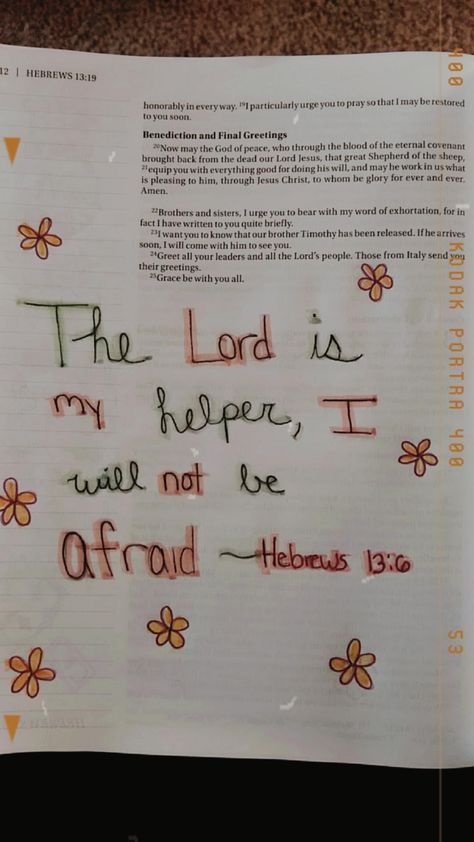 12 | HEBREWS 13:19
honorably in every way. 19I particularly urge you to pray so that I may be restored
to you soon.
Benediction and Final Greetings
20Now may the God of peace, who through the blood of the eternal covenant
brought back from the dead our Lord Jesus, that great Shepherd of the sheep,
21equip you with everything good for doing his will, and may he work in us what
is pleasing to him, through Jesus Christ, to whom be glory for ever and ever.
Amen.
22Brothers and sisters, I urge you to bear with my word of exhortation, for in
fact I have written to you quite briefly.
23I want you to know that our brother Timothy has been released. If he arrives
soon, I will come with him to see you.
24Greet all your leaders and all the Lord's people. Those from Italy send you
their greetings.
25Grace be with you all.
The Lord is
my helper, I
will not be
afraid ~Hebrews 13:6
400
KODAK PORTRA 400
53